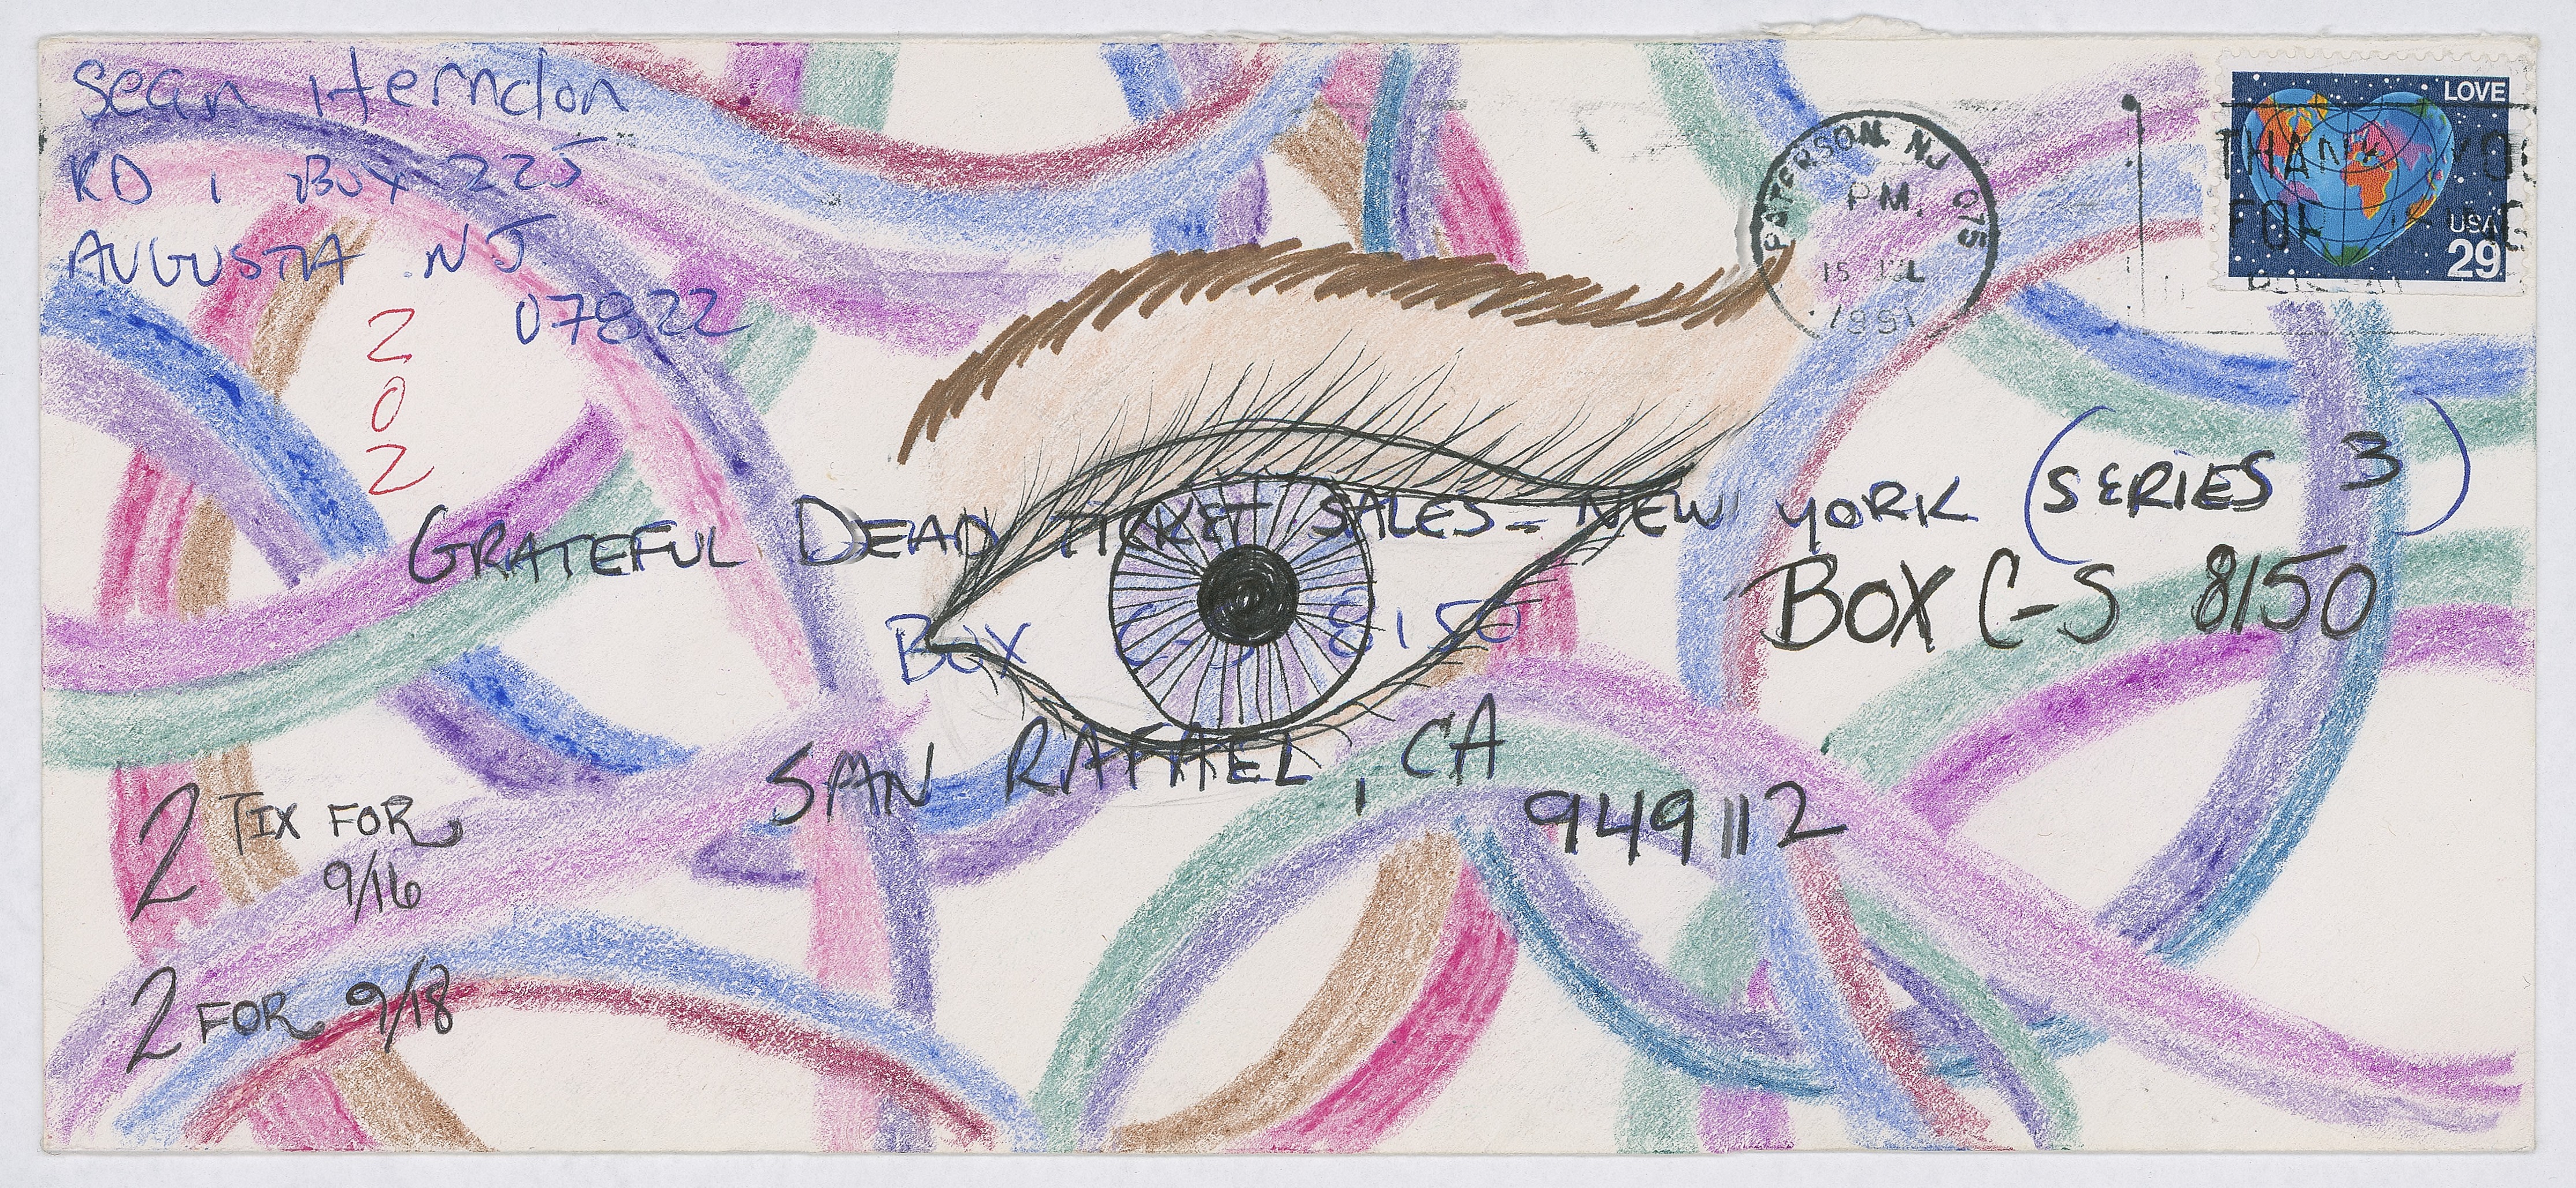 Sean Herndon
RD 1 Box 225
AUGUSTA NJ
07822
2
0
2
PATERSON, NJ 075
P.M.
15 JUL
1991
LOVE
USA
29
THANK YOU
FOR USING
GRATEFUL DEAD TICKET SALES - NEW YORK (SERIES 3)
BOX C-S 8150
BOX C-S 8150
SAN RAFAEL, CA
949112
2 TIX FOR
9/16
2 FOR 9/18